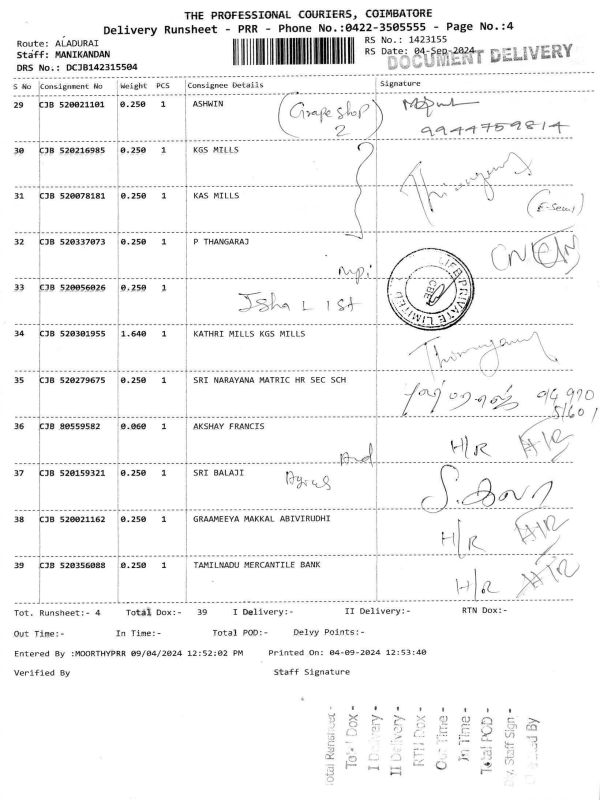 THE PROFESSIONAL COURIERS, COIMBATORE
Delivery Runsheet - PRR - Phone No.:0422-3505555 - Page No.:4
Route: ALADURAI
RS No.: 1423155
Staff: MANIKANDAN
RS Date: 04-Sep-2024
DRS No.: DCJB142315504
DOCUMENT DELIVERY
S No Consignment No Weight PCS Consignee Details Signature
29 CJB 520021101 0.250 1 ASHWIN (Grape Shop 2) 9944759814
30 CJB 520216985 0.250 1 KGS MILLS
31 CJB 520078181 0.250 1 KAS MILLS
32 CJB 520337073 0.250 1 P THANGARAJ
33 CJB 520056026 0.250 1 PRIVATE LIMITED CBE
34 CJB 520301955 1.640 1 KATHRI MILLS KGS MILLS
35 CJB 520279675 0.250 1 SRI NARAYANA MATRIC HR SEC SCH
36 CJB 80559582 0.060 1 AKSHAY FRANCIS H/R
37 CJB 520159321 0.250 1 SRI BALAJI
38 CJB 520021162 0.250 1 GRAAMEEYA MAKKAL ABIVIRUDHI H/R
39 CJB 520356088 0.250 1 TAMILNADU MERCANTILE BANK H/R
Tot. Runsheet:- 4 Total Dox:- 39 I Delivery:- II Delivery:- RTN Dox:-
Out Time:- In Time:- Total POD:- Delvy Points:-
Entered By :MOORTHYPRR 09/04/2024 12:52:02 PM Printed On: 04-09-2024 12:53:40
Verified By Staff Signature
Total Runsheet -
Total Dox -
I Delivery -
II Delivery -
RTN Dox -
Out Time -
In Time -
Total POD -
Staff Sign -